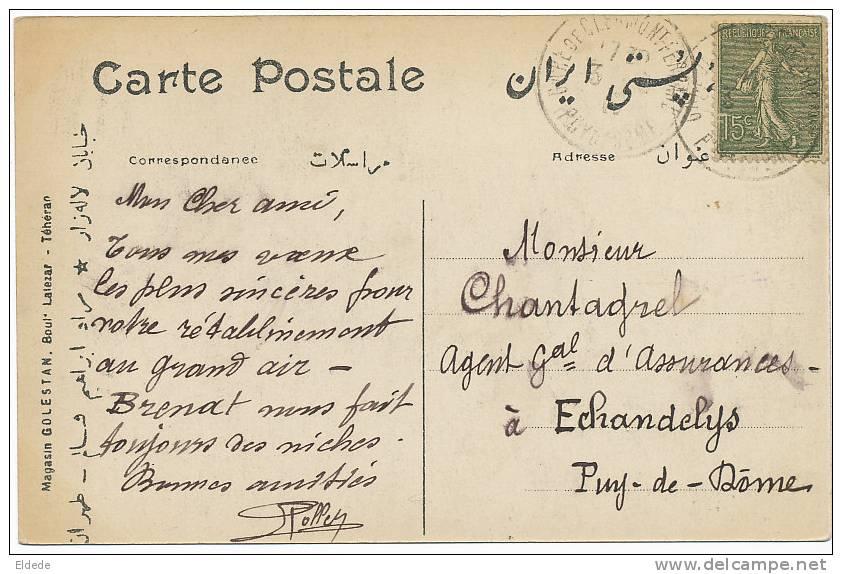 Carte Postale
پستی ایران
RÉPUBLIQUE FRANÇAISE
15c
Correspondance
مراسلات
Adresse
عنوان
Mon Cher ami,
Tous mes vœux
les plus sincères pour
votre rétablinement
au grand air —
Brenat nous fait
toujours des niches.
Bonnes amitiés
Monsieur
Chantagrel
Agent Gal d'Assurances -
à Echandelys
Puy-de-Dôme
Magasin GOLESTAN. Boult Lalezar - Téhéran
خیابان لاله‌زار ★
طهران
Eldede
www.delcampe.net